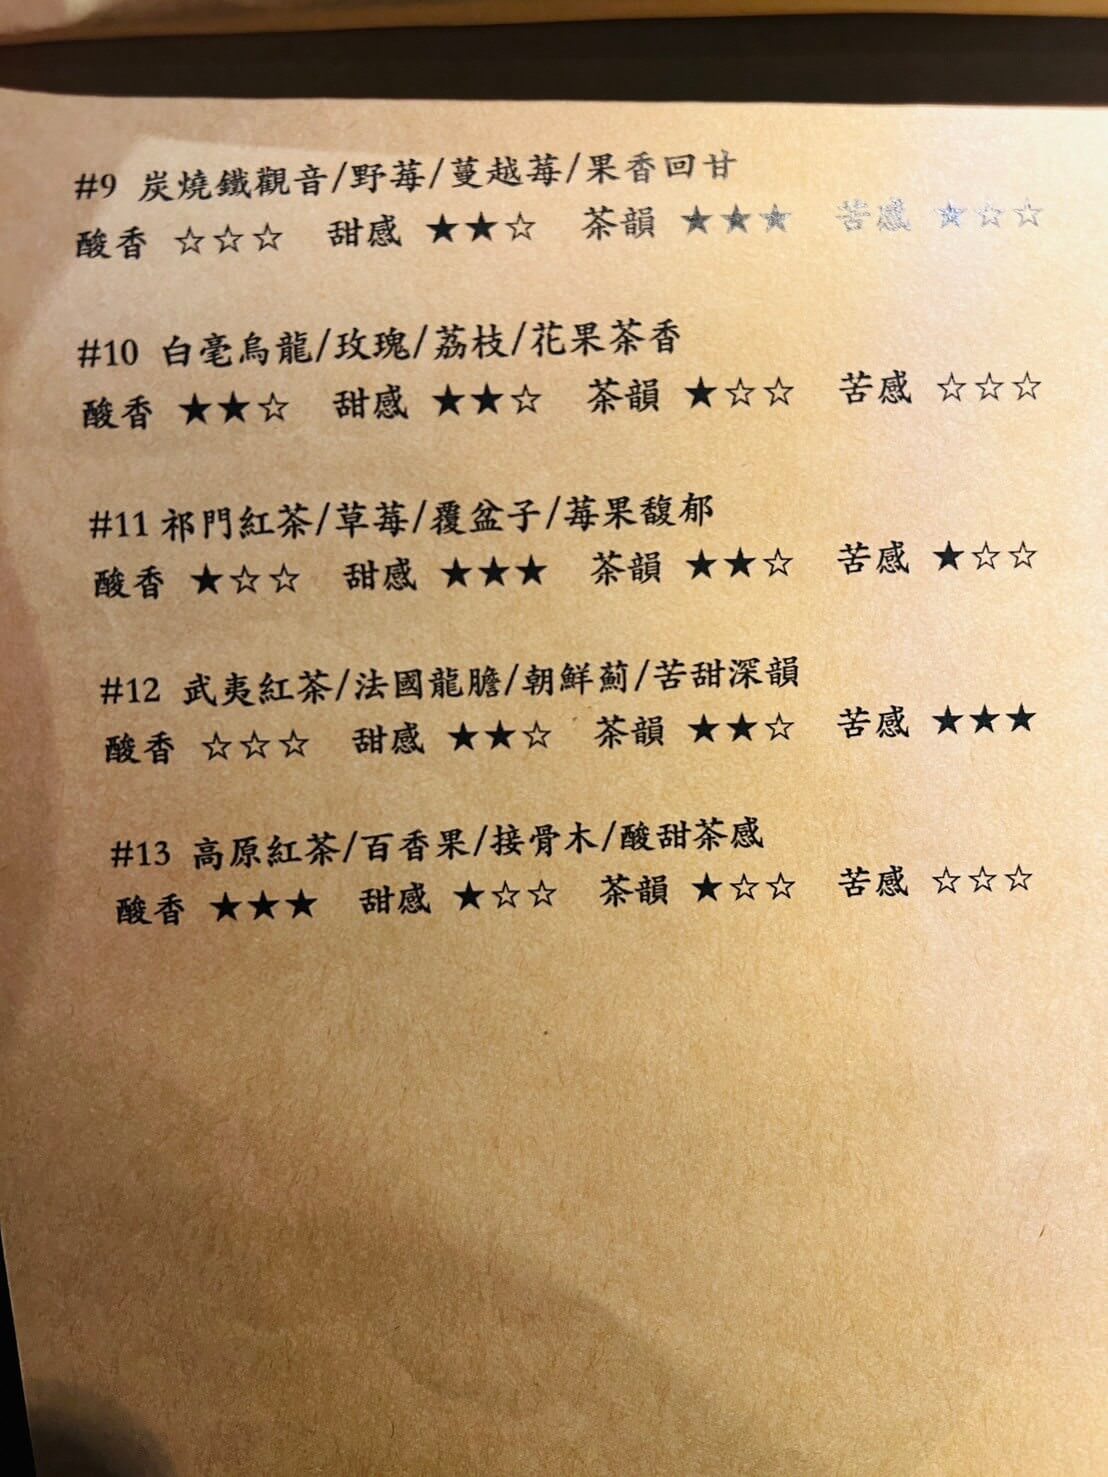 #9 炭燒鐵觀音/野莓/蔓越莓/果香回甘
酸香 ☆☆☆ 甜感 ★★☆ 茶韻 ★★★ 苦感 ★☆☆
#10 白毫烏龍/玫瑰/荔枝/花果茶香
酸香 ★★☆ 甜感 ★★☆ 茶韻 ★☆☆ 苦感 ☆☆☆
#11 祁門紅茶/草莓/覆盆子/莓果馥郁
酸香 ★☆☆ 甜感 ★★★ 茶韻 ★★☆ 苦感 ★☆☆
#12 武夷紅茶/法國龍膽/朝鮮薊/苦甜深韻
酸香 ☆☆☆ 甜感 ★★☆ 茶韻 ★★☆ 苦感 ★★★
#13 高原紅茶/百香果/接骨木/酸甜茶感
酸香 ★★★ 甜感 ★☆☆ 茶韻 ★☆☆ 苦感 ☆☆☆